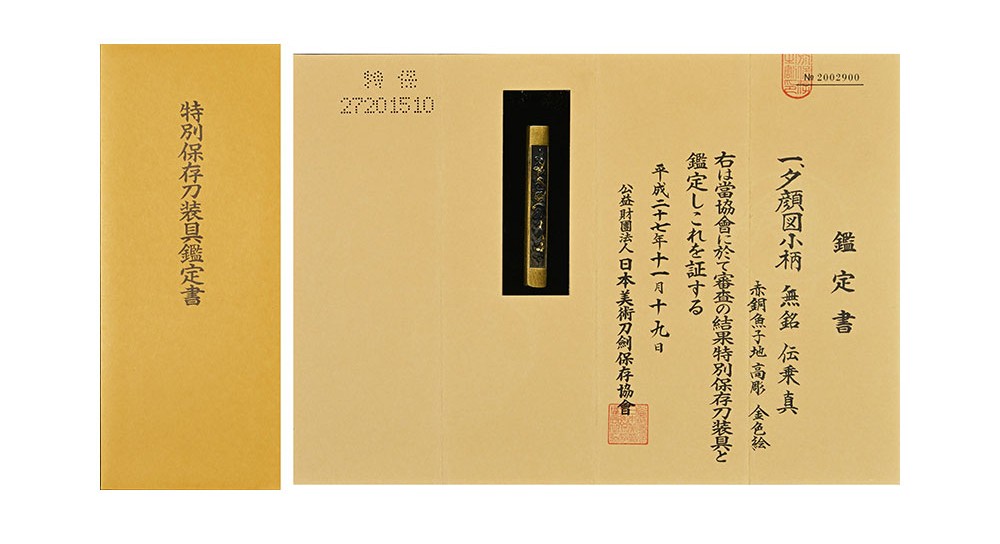 特別保存刀装具鑑定書
特保
27201510
№ 2002900
鑑定書
一、夕顔図小柄 無銘 伝乗真
赤銅魚子地 高彫 金色絵
右は當協會に於て審査の結果特別保存刀装具と
鑑定しこれを証する
平成二十七年十一月十九日
公益財團法人 日本美術刀劍保存協會